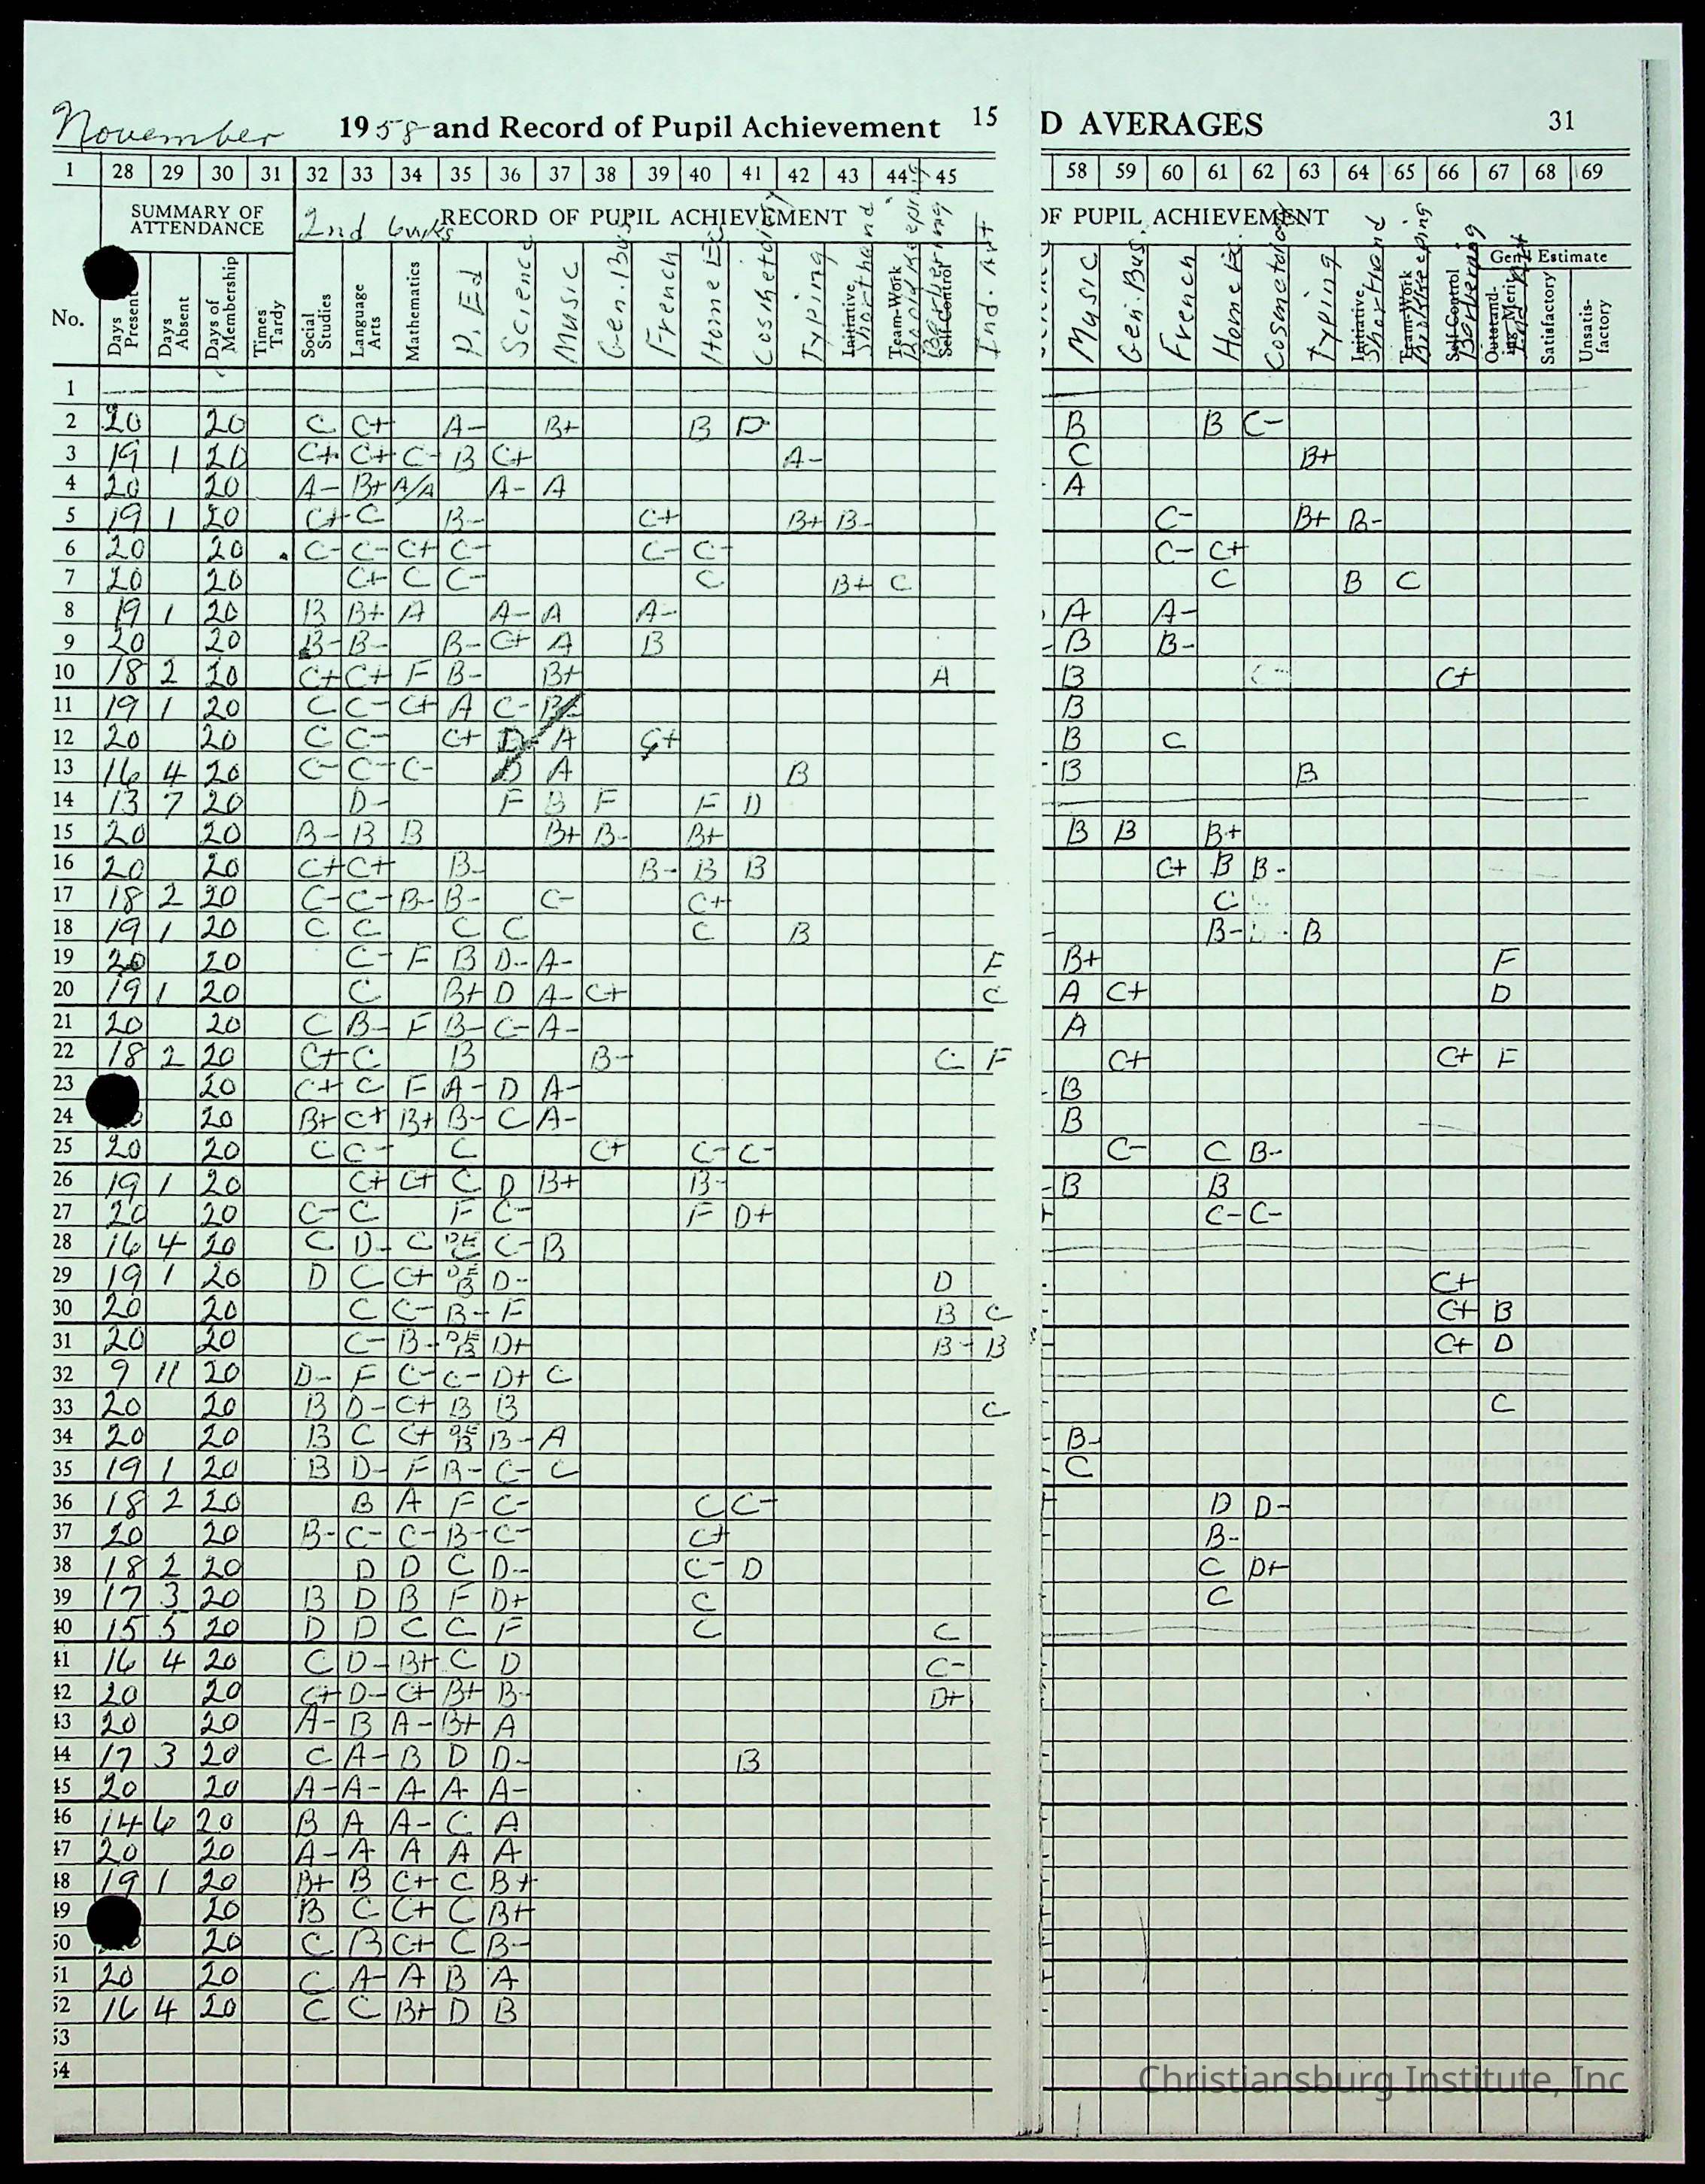 November 1958 and Record of Pupil Achievement 15 D AVERAGES 31
1 28 29 30 31 32 33 34 35 36 37 38 39 40 41 42 43 44 45 58 59 60 61 62 63 64 65 66 67 68 69
SUMMARY OF ATTENDANCE 2nd 6wks RECORD OF PUPIL ACHIEVEMENT OF PUPIL ACHIEVEMENT
No. Days Present Days Absent Days of Membership Times Tardy Social Studies Language Arts Mathematics P. Ed Science Music Gen. Bus French Home Ec Cosmetology Typing Initiative Shorthand Team-Work Bookkeeping Self Control Barbering Ind. Art Music Gen. Bus. French Home Ec. Cosmetology Typing Initiative Shorthand Team-Work Bookkeeping Self Control Barbering Gen'l Estimate Outstanding Merit Ind Art Satisfactory Unsatisfactory
1
2 20 20 C C+ A- B+ B D B B C-
3 19 1 20 C+ C+ C- B C+ A- C B+
4 20 20 A- B+ A/A A- A A
5 19 1 20 C+ C B- C+ B+ B- C- B+ B-
6 20 20 C- C- C+ C- C- C- C- C+
7 20 20 C+ C C- C B+ C C B C
8 19 1 20 B B+ A A- A A- A A-
9 20 20 B- B- B- C+ A B B B-
10 18 2 20 C+ C+ F B- B+ A B C+
11 19 1 20 C C- C+ A C- B
12 20 20 C C- C+ D- A C+ B C
13 16 4 20 C- C- C- D A B B B
14 13 7 20 D- F B F F D
15 20 20 B- B B B+ B- B+ B B B+
16 20 20 C+ C+ B- B- B B C+ B B-
17 18 2 20 C- C- B- B- C- C+ C
18 19 1 20 C C C C C B B- B
19 20 20 C- F B D- A- F B+ F
20 19 1 20 C B+ D A- C+ C A C+ D
21 20 20 C B- F B- C- A- A
22 18 2 20 C+ C B B- C F C+ C+ F
23 20 C+ C F A- D A- B
24 20 B+ C+ B+ B- C A- B
25 20 20 C C- C C+ C- C- C- C B-
26 19 1 20 C+ C+ C D B+ B- B B
27 20 20 C- C F C- F D+ C- C-
28 16 4 20 C D- C DE C C- B
29 19 1 20 D C C+ DE B D- D C+
30 20 20 C C- B- F B C C+ B
31 20 20 C- B- DE B D+ B- B C+ D
32 9 11 20 D- F C- C- D+ C
33 20 20 B D- C+ B B C C
34 20 20 B C C+ DE B B- A B-
35 19 1 20 B D- F B- C- C C
36 18 2 20 B A F C- C C- D D-
37 20 20 B- C- C- B- C- C+ B-
38 18 2 20 D D C D- C- D C D+
39 17 3 20 B D B F D+ C C
40 15 5 20 D D C C F C C
41 16 4 20 C D- B+ C D C-
42 20 20 C+ D- C+ B+ B- D+
43 20 20 A- B A- B+ A
44 17 3 20 C A- B D D- B
45 20 20 A- A- A A A-
46 14 6 20 B A A- C A
47 20 20 A- A A A A
48 19 1 20 B+ B C+ C B+
49 20 B C C+ C B+
50 20 C B C+ C B-
51 20 20 C A- A B A
52 16 4 20 C C B+ D B
53
54
Christiansburg Institute, Inc